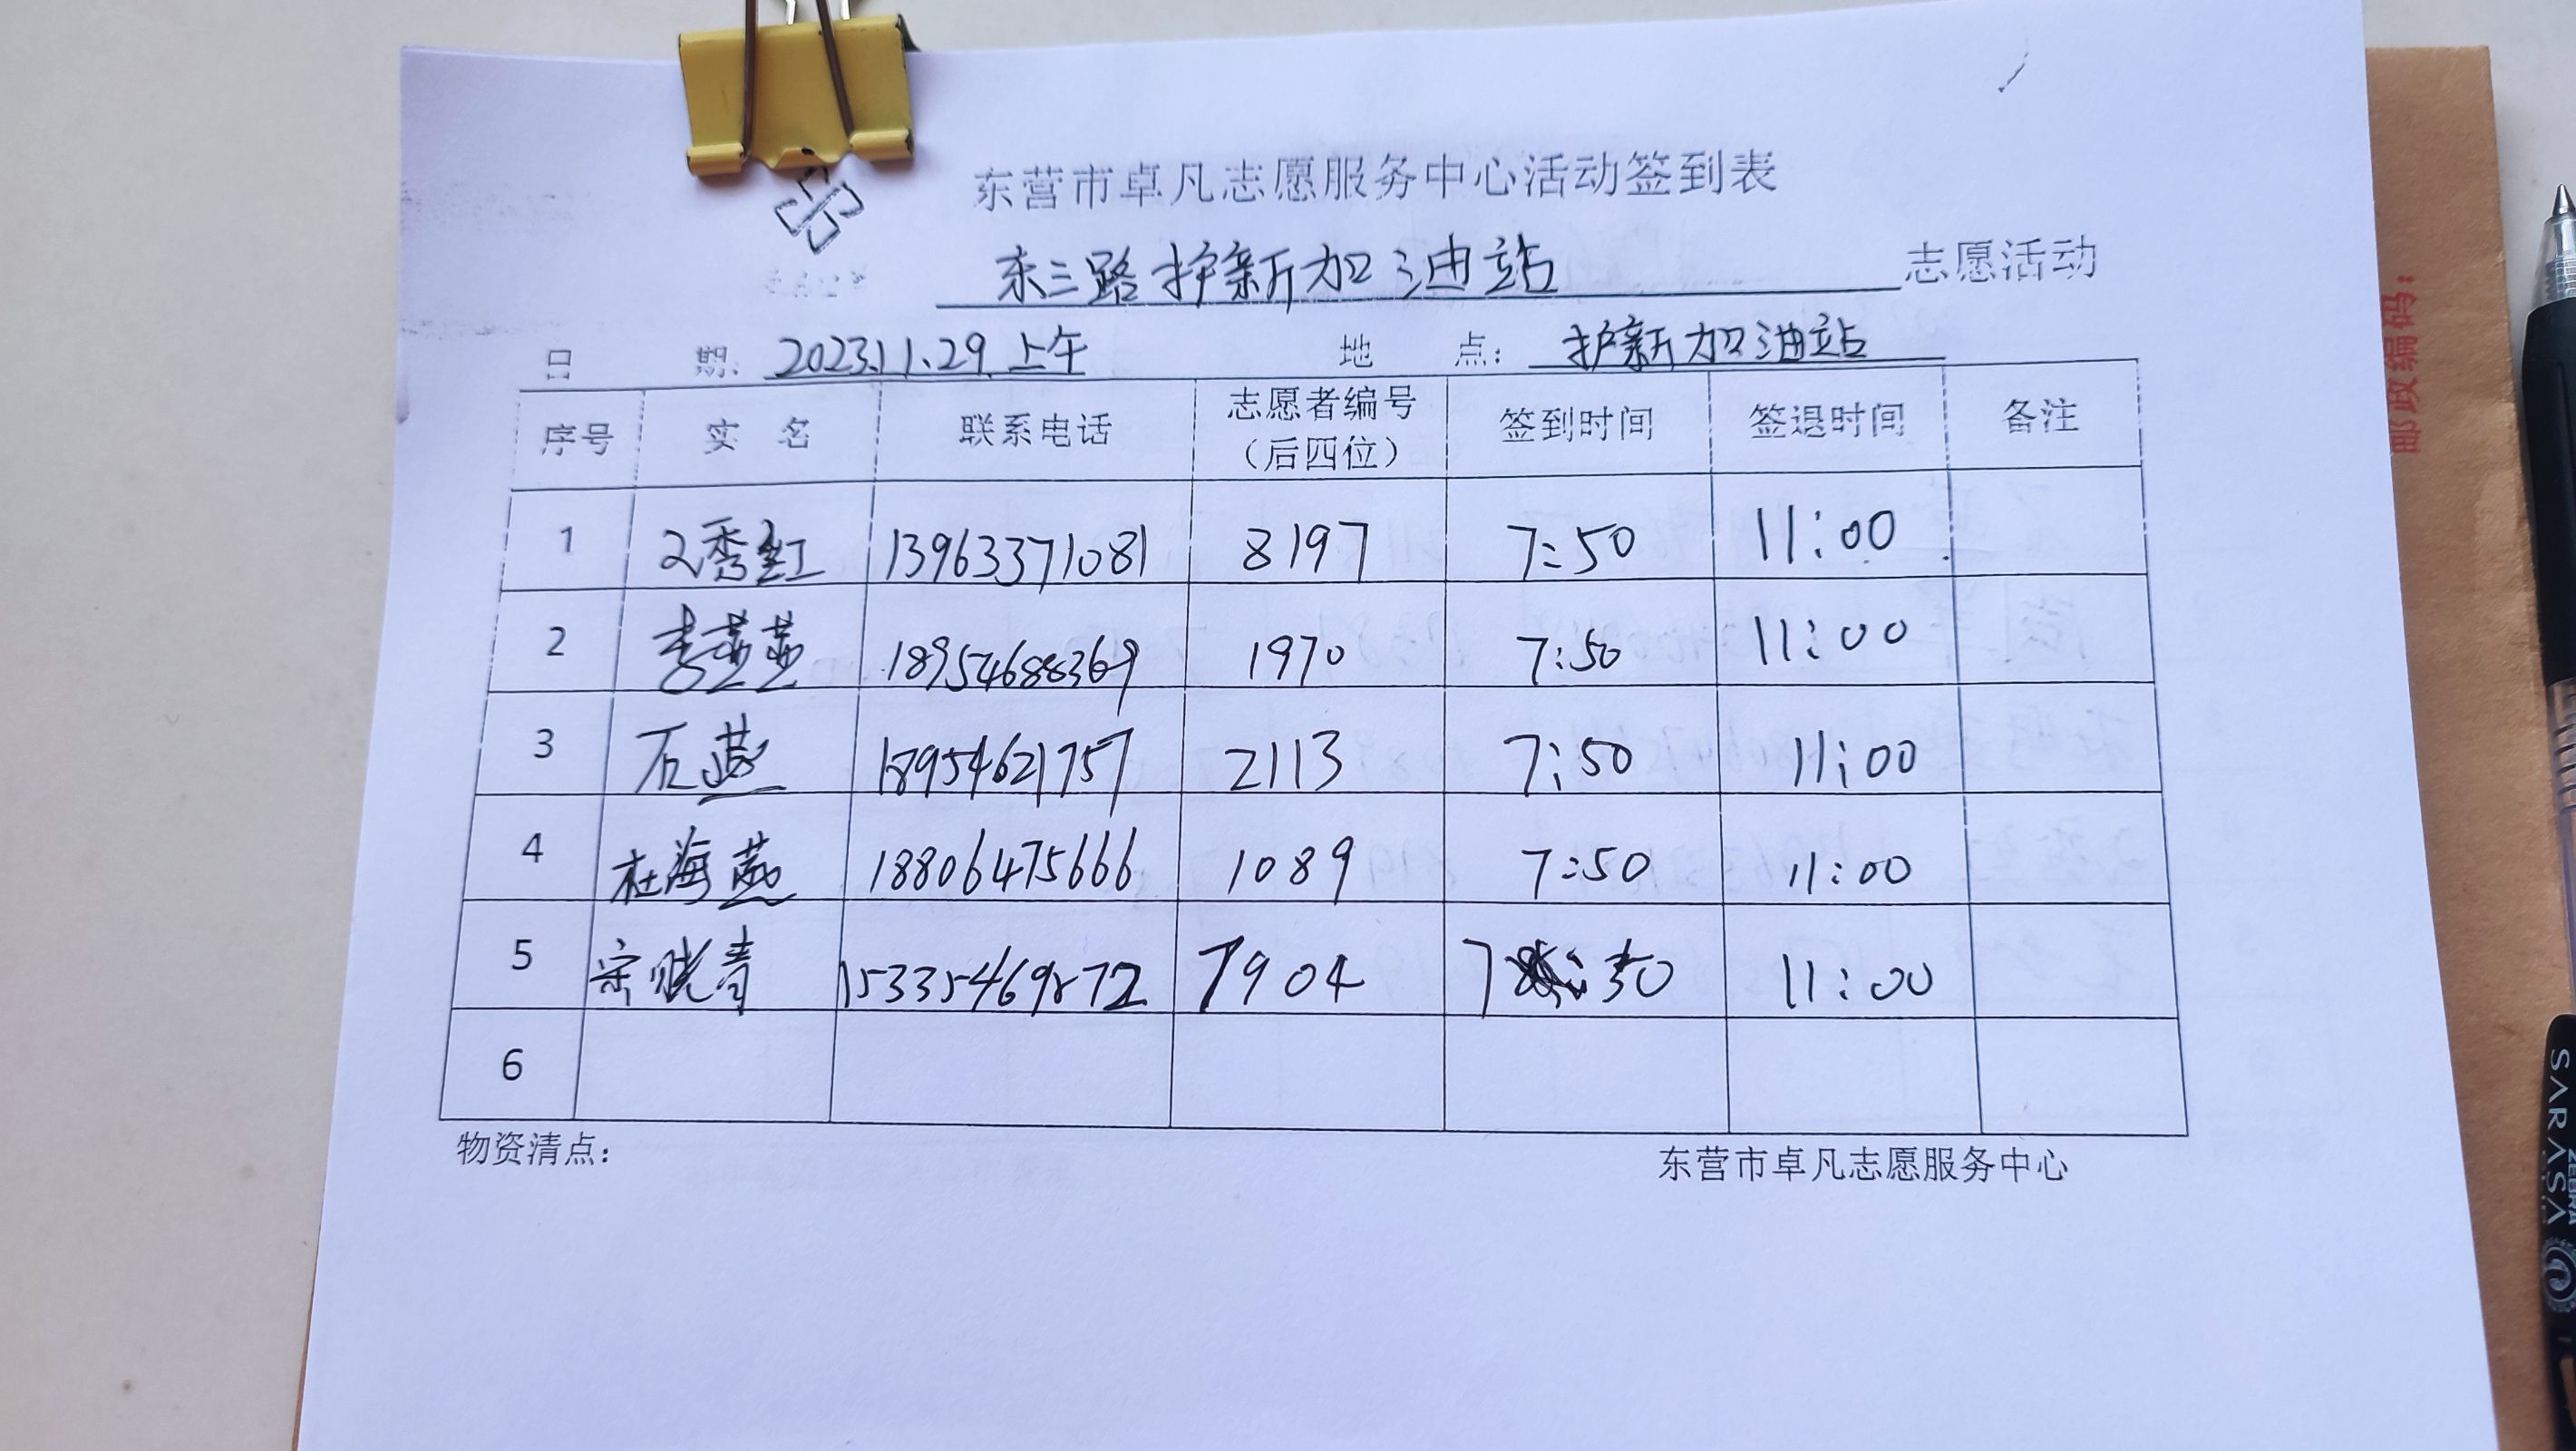 东营市卓凡志愿服务中心活动签到表
东三路护新加油站 志愿活动
日 期: 2023.11.29 上午 地 点: 护新加油站
序号 实 名 联系电话 志愿者编号（后四位） 签到时间 签退时间 备注
1 秀红 13963371081 8197 7:50 11:00
2 李燕燕 18954688369 1970 7:50 11:00
3 石燕 18954621757 2113 7:50 11:00
4 杜海燕 18806475666 1089 7:50 11:00
5 宋晓青 15335469872 7904 7:30 11:00
6
物资清点: 东营市卓凡志愿服务中心
邮政编码:
SARASA
ZEBRA